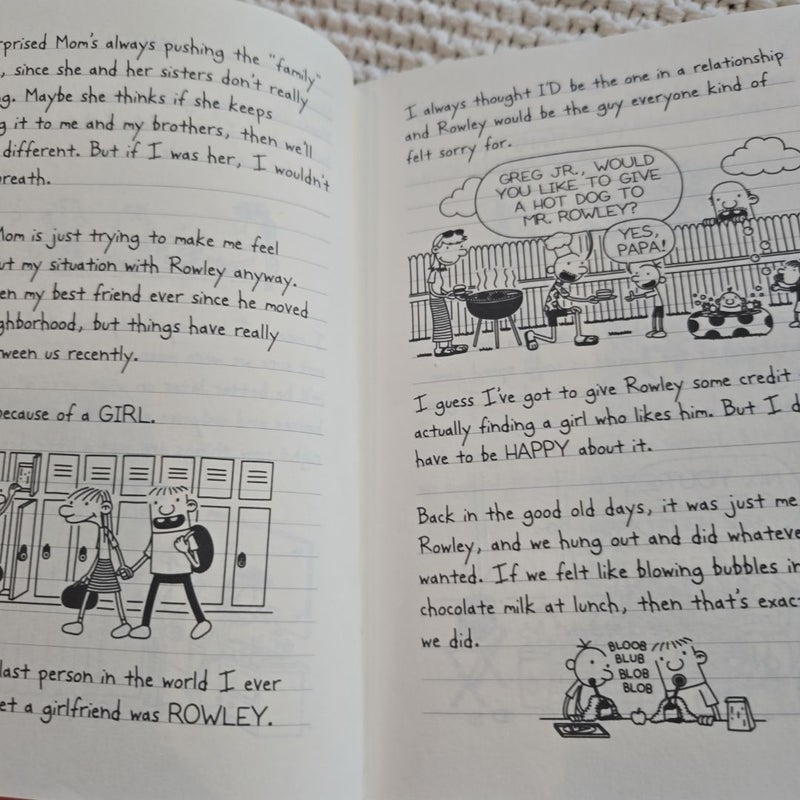 rprised Mom's always pushing the "family"
, since she and her sisters don't really
g. Maybe she thinks if she keeps
g it to me and my brothers, then we'll
different. But if I was her, I wouldn't
reath.
Mom is just trying to make me feel
ut my situation with Rowley anyway.
en my best friend ever since he moved
ghborhood, but things have really
ween us recently.
because of a GIRL.
last person in the world I ever
et a girlfriend was ROWLEY.
I always thought I'D be the one in a relationship
and Rowley would be the guy everyone kind of
felt sorry for.
GREG JR., WOULD
YOU LIKE TO GIVE
A HOT DOG TO
MR. ROWLEY?
YES,
PAPA!
I guess I've got to give Rowley some credit
actually finding a girl who likes him. But I d
have to be HAPPY about it.
Back in the good old days, it was just me
Rowley, and we hung out and did whateve
wanted. If we felt like blowing bubbles in
chocolate milk at lunch, then that's exac
we did.
BLOOB
BLUB
BLOB
BLOB